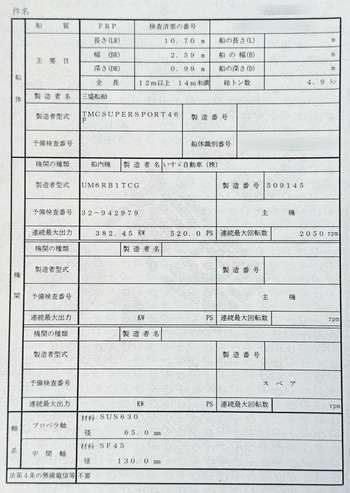 件名
船 質 FRP 検査済票の番号
船体
主要目
長さ(LR) 10.70 m 船の長さ(L) m
幅 (BR) 2.59 m 船の幅(B) m
深さ(DR) 0.99 m 船の深さ(D) m
全 長 12m以上 14m未満 総トン数 4.9 トン
製造者名 三盛船舶
製造者型式 TMCSUPERSPORT46
F
予備検査番号 船体識別番号
機関
機関の種類 船内機 製造者名 いすゞ自動車(株)
製造者型式 UM6RB1TCG 製造番号 509145
予備検査番号 32-942979 主 機
連続最大出力 382.45 KW 520.0 PS 連続最大回転数 2050 rpm
機関の種類 製造者名
製造者型式 製造番号
予備検査番号 主 機
連続最大出力 KW PS 連続最大回転数 rpm
機関の種類 製造者名
製造者型式 製造番号
予備検査番号 スペア
連続最大出力 KW PS 連続最大回転数 rpm
軸系
プロペラ軸 材料 SUS630
径 65.0 mm
中間軸 材料 SF45
径 130.0 mm
法第4条の無線電信等 不要